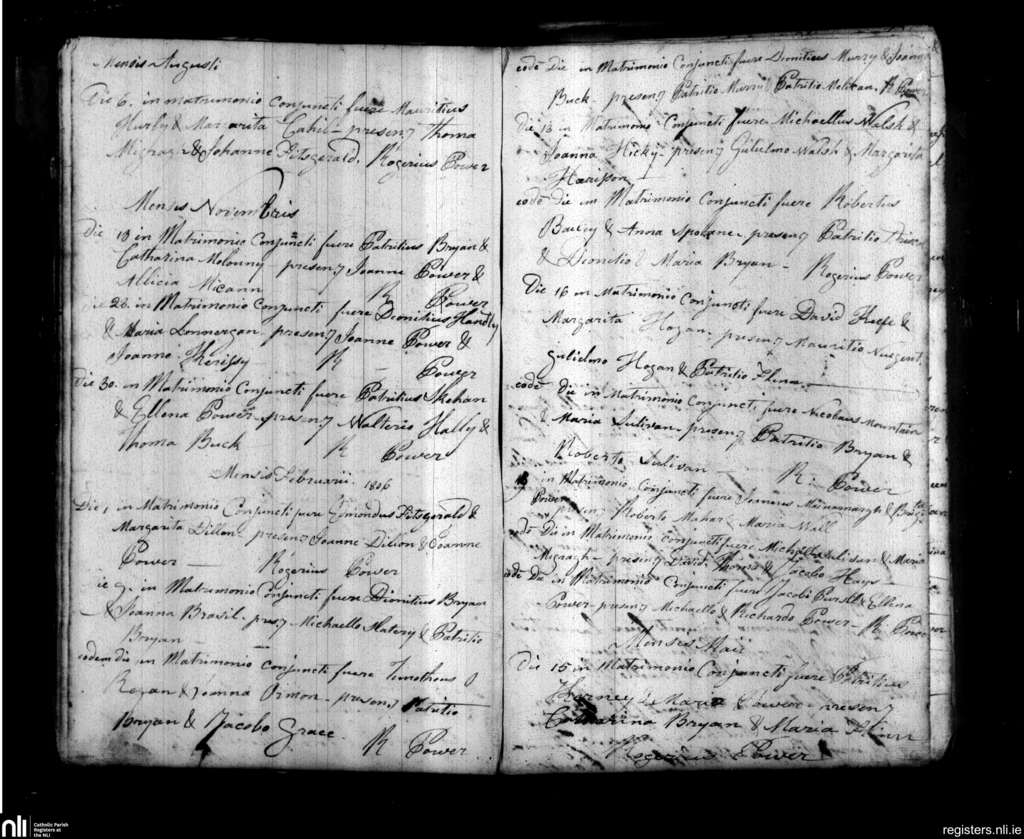 Mensis Augusti
Die 6. in matrimonio conjuncti fuere Mauritius
Hurly & Margarita Cahil - presen7 Thoma
& Johanne Fitsgerald. Rogerius Power
Mensis Novembris
Die 10 in Matrimonio Conjuncti fuere Patritius Bryan &
Catharina Melonny - presen7 Joanne Power &
Albicia Micann R Power
28. in Matrimonio Conjuncti fuere Dionitius Handly
& Maria Lonnergan - presen7 Joanne Power &
Joanno R Power
Die 30. in Matrimonio Conjuncti fuere Patritius Skehan
& Ellena Power - presen7 Walterio Hally &
Thoma Buck R Power
Mensis Februarii 1806
Die 1 in Matrimonio Conjuncti fuere Edmondus Fitsgerald &
Margarita Dillon - presen7 Joanne Dillon & Joanne
Power — Rogerius Power
ie 9. in Matrimonio Conjuncti fuere Dionitius Bryan
& Joanna Brasil - pres7 Michaello Slatery & Patritio
Bryan —
eodem die in Matrimonio conjuncti fuere Timotheus
Regan & Joanna Ormon - presen7 Patritio
Bryan & Jacobo Grace - R Power
eodē die in Matrimonio Conjuncti fuere Dionitius Murry & Joanna
Buck - presen7 Patritio Murry & Patritio R Power
Die 13 in Matrimonio Conjuncti fuere Michaellus Walsh &
Joanna Hicky - presen7 Gulielmo Walsh & Margarita
Harisson —
eodē die in Matrimonio Conjuncti fuere Robertus
Bailey & Anna presen7 Patritio
& Dionitio & Maria Bryan - Rogerius Power
Die 16 in Matrimonio Conjuncti fuere David Keefe &
Margarita Hogan - presen7 Mauritio Nugent
Gulielmo Hogan & Patritio Flinn —
eodē die in Matrimonio Conjuncti fuere Nicolaus Mountain
& Maria Sulivan - presen7 Patritio Bryan &
Roberto Sulivan — R. Power
in Matrimonio Conjuncti fuere
Power presen7 Roberto Mahar & Maria Wall
eodē Die in Matrimonio Conjuncti fuere Michael Sulivan & Maria
Migragh - presen7 David & Jacobo Hays
eodē Die in Matrimonio Conjuncti fuere Jacobi Pursell & Ellena
Power - presen7 Michaello & Richardo Power - R Power
Mensis Maii
Die 15 in Matrimonio Conjuncti fuere Patritius
& Maria Power - presen7
Catharina Bryan & Maria Flinn
Rogerius Power
nli Catholic Parish
Registers at
the NLI
registers.nli.ie